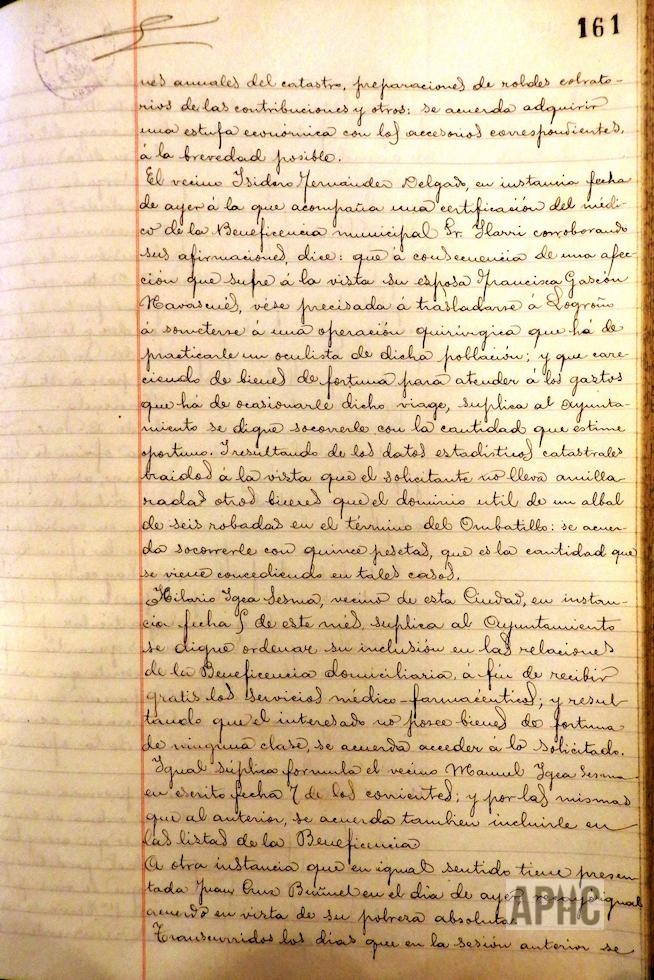 161
nes anuales del catastro, preparaciones de roldes cobrato-
rios de las contribuciones y otros: se acuerda adquirir
una estufa económica con los accesorios correspondientes,
á la brevedad posible.
El vecino Isidoro Fernández Delgado, en instancia fecha
de ayer á la que acompaña una certificación del médi-
co de la Beneficencia municipal Sr. Ilarri corroborando
sus afirmaciones, dice: que á consecuencia de una afec-
ción que sufre á la vista su esposa Francisca Gascón
Navascués, vése precisada á trasladarse á Logroño
á someterse á una operación quirúrgica que há de
practicarle un oculista de dicha población; y que care-
ciendo de bienes de fortuna para atender á los gastos
que há de ocasionarle dicho viage, suplica al Ayunta-
miento se digne socorrerle con la cantidad que estime
oportuno. Y resultando de los datos estadísticos catastrales
traidos á la vista que el solicitante no lleva amilla-
radas otros bienes que el dominio util de un albal
de seis robadas en el término del Ombatillo: se acuer-
da socorrerle con quince pesetas, que es la cantidad que
se viene concediendo en tales casos.
Hilario Igea Sesma, vecino de esta Ciudad, en instan-
cia fecha de este mes, suplica al Ayuntamiento
se digne ordenar su inclusión en las relaciones
de la Beneficencia domiciliaria, á fin de recibir
gratis los servicios médico-farmacéuticos; y resul-
tando que el interesado no posee bienes de fortuna
de ninguna clase, se acuerda acceder á lo solicitado.
Igual súplica formula el vecino Manuel Igea Sesma
en escrito fecha 7 de los corrientes; y por las mismas
que al anterior, se acuerda tambien incluirle en
las listas de la Beneficencia
A otra instancia que en igual sentido tiene presen-
tada Juan Cruz Buñuel en el día de ayer igual
acuerdo en vista de su pobreza absoluta.
Transcurridos los dias que en la sesión anterior se
APHC